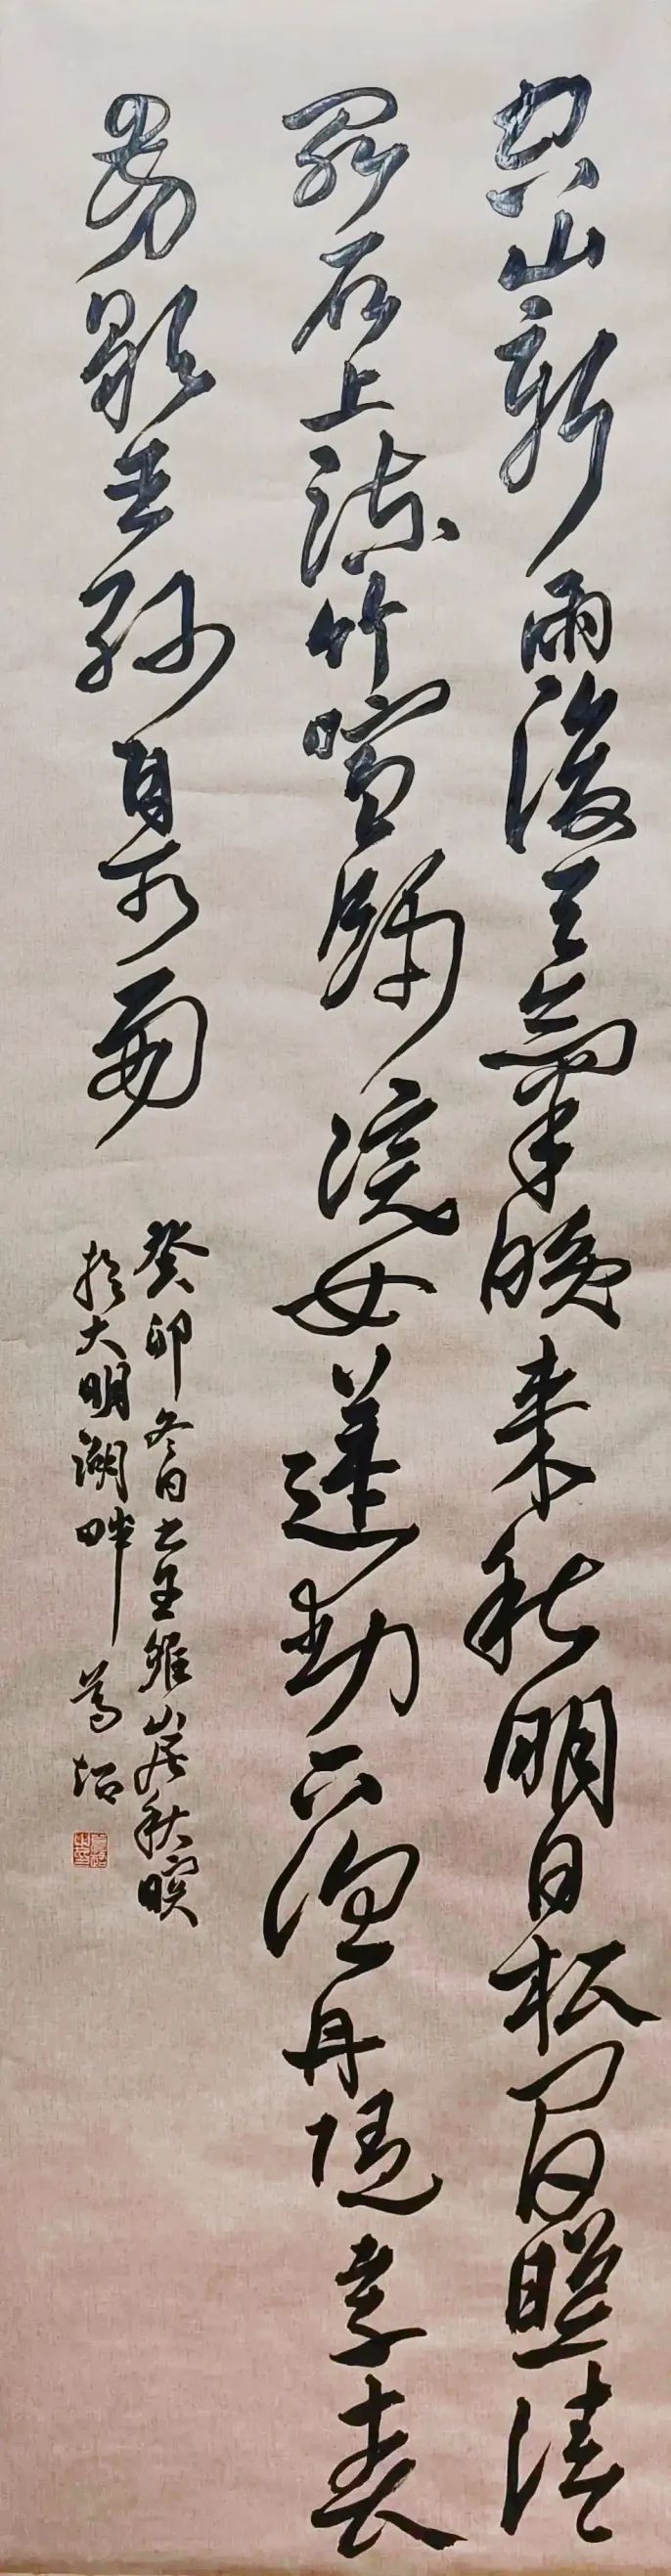 空山新雨後天氣晚來秋明月松間照清
泉石上流竹喧歸浣女蓮動下漁舟隨意春
芳歇王孫自可留
癸卯冬月书王維山居秋暝
於大明湖畔